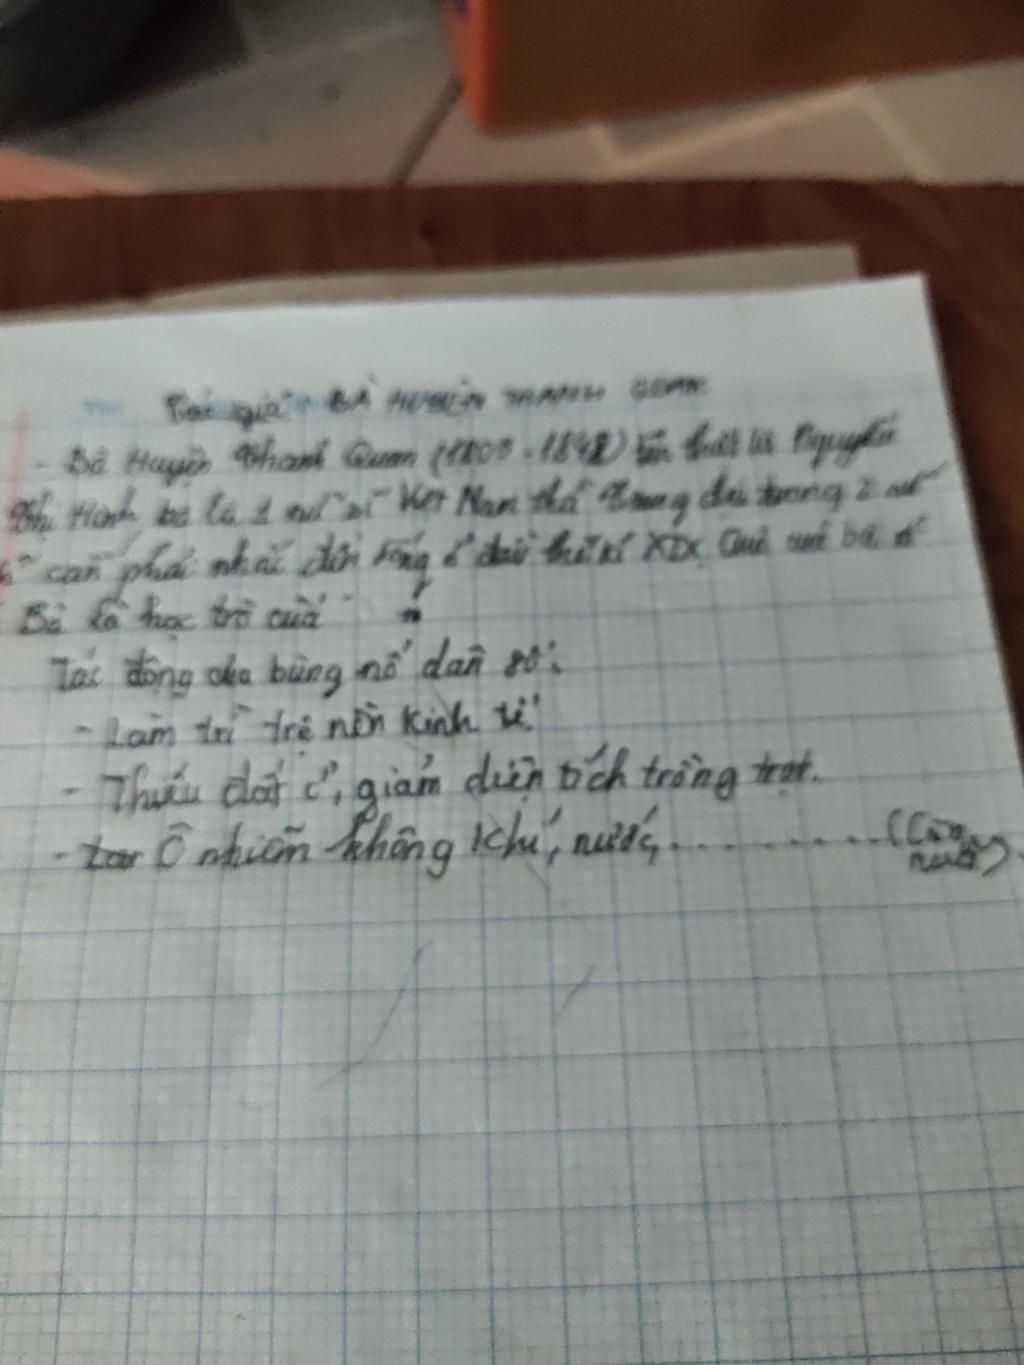 Tác giả: BÀ HUYỆN THANH QUAN
- Bà Huyện Thanh Quan (1800 - 1848) tên thật là Nguyễn
Thị Hinh bà là 1 nữ sĩ Việt Nam thời trung đại trong 2 nữ
sĩ cần phải nhắc đến sống ở đầu thế kỉ XIX Quê bà ở
Bà là học trò của
Tác động của bùng nổ dân số:
- Làm trì trệ nền kinh tế
- Thiếu đất ở, giảm diện tích trồng trọt.
- Ô nhiễm không khí, nước, .......... (Còn nữa)